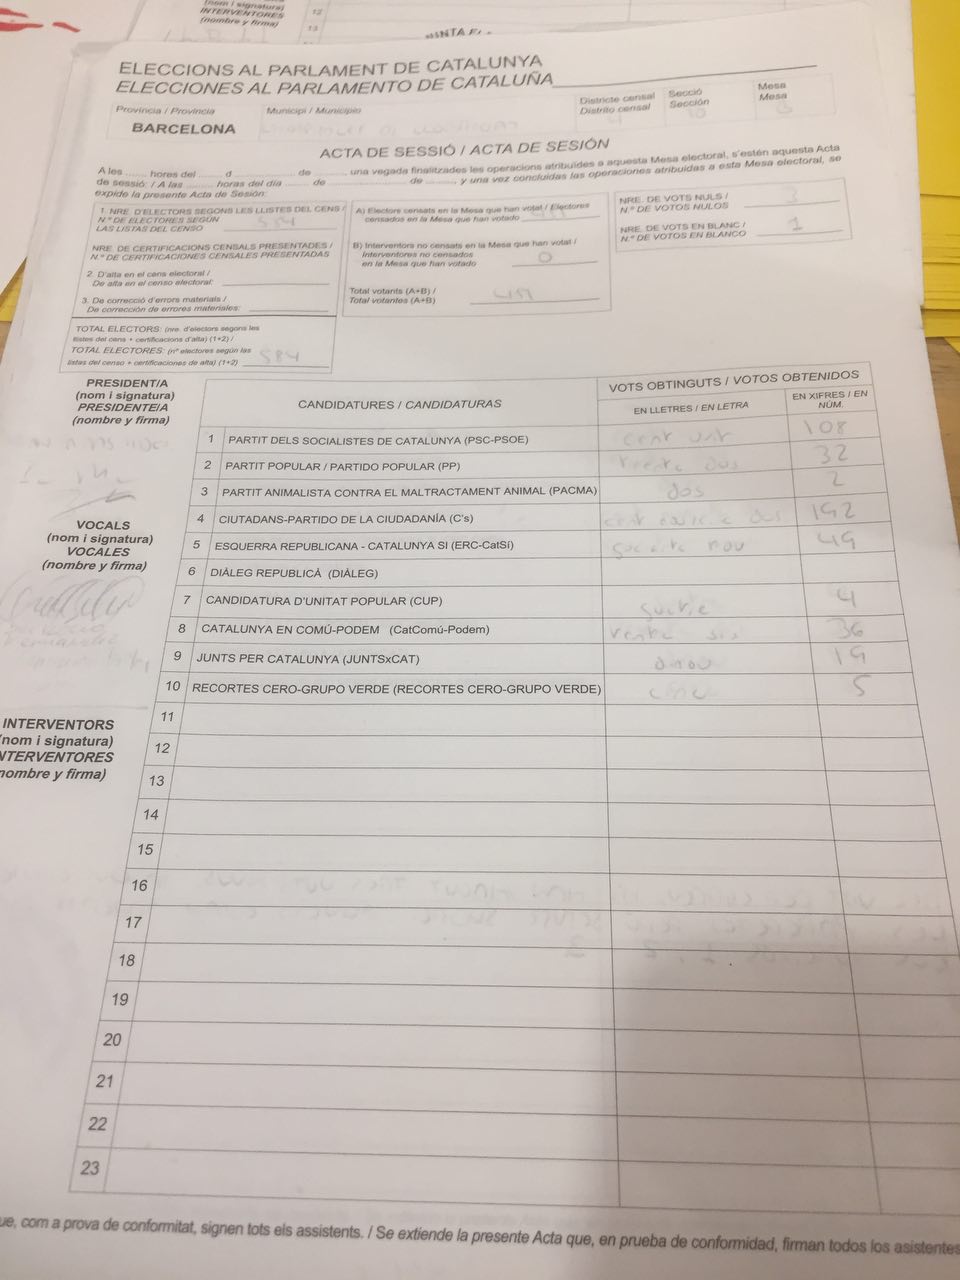 (nom i signatura)
INTERVENTORES
(nombre y firma)
12
13
ELECCIONS AL PARLAMENT DE CATALUNYA
ELECCIONES AL PARLAMENTO DE CATALUÑA
Província / Provincia
Municipi / Municipio
Districte censal
Distrito censal
Secció
Sección
Mesa
Mesa
BARCELONA
10
ACTA DE SESSIÓ / ACTA DE SESIÓN
A les ........ hores del ........ d ........ de ........ una vegada finalitzades les operacions atribuïdes a aquesta Mesa electoral, s'estén aquesta Acta
de sessió: / A las ........ horas del día ........ de ........ de ........ y una vez concluidas las operaciones atribuidas a esta Mesa electoral, se
expide la presente Acta de Sesión:
1. NRE. D'ELECTORS SEGONS LES LLISTES DEL CENS /
N.º DE ELECTORES SEGÚN
LAS LISTAS DEL CENSO 584
NRE. DE CERTIFICACIONS CENSALS PRESENTADES /
N.º DE CERTIFICACIONES CENSALES PRESENTADAS
2. D'alta en el cens electoral /
De alta en el censo electoral:
3. De correcció d'errors materials /
De corrección de errores materiales:
TOTAL ELECTORS: (nre. d'electors segons les
llistes del cens + certificacions d'alta) (1+2) /
TOTAL ELECTORES: (nº electores según las
listas del censo + certificaciones de alta) (1+2) 584
A) Electors censats en la Mesa que han votat / Electores
censados en la Mesa que han votado 451
B) Interventors no censats en la Mesa que han votat /
Interventores no censados
en la Mesa que han votado 0
Total votants (A+B) /
Total votantes (A+B) 451
NRE. DE VOTS NULS /
N.º DE VOTOS NULOS 3
NRE. DE VOTS EN BLANC /
N.º DE VOTOS EN BLANCO 1
PRESIDENT/A
(nom i signatura)
PRESIDENTE/A
(nombre y firma)
VOCALS
(nom i signatura)
VOCALES
(nombre y firma)
INTERVENTORS
(nom i signatura)
INTERVENTORES
(nombre y firma)
CANDIDATURES / CANDIDATURAS
VOTS OBTINGUTS / VOTOS OBTENIDOS
EN LLETRES / EN LETRA
EN XIFRES / EN
NÚM.
1 PARTIT DELS SOCIALISTES DE CATALUNYA (PSC-PSOE) cent vuit 108
2 PARTIT POPULAR / PARTIDO POPULAR (PP) trenta dos 32
3 PARTIT ANIMALISTA CONTRA EL MALTRACTAMENT ANIMAL (PACMA) dos 2
4 CIUTADANS-PARTIDO DE LA CIUDADANÍA (C's) cent dos 192
5 ESQUERRA REPUBLICANA - CATALUNYA SI (ERC-CatSí) nou 49
6 DIÀLEG REPUBLICÀ (DIÀLEG)
7 CANDIDATURA D'UNITAT POPULAR (CUP) 4
8 CATALUNYA EN COMÚ-PODEM (CatComú-Podem) sis 36
9 JUNTS PER CATALUNYA (JUNTSxCAT) dinou 19
10 RECORTES CERO-GRUPO VERDE (RECORTES CERO-GRUPO VERDE) cinc 5
11
12
13
14
15
16
17
18
19
20
21
22
23
ue, com a prova de conformitat, signen tots els assistents. / Se extiende la presente Acta que, en prueba de conformidad, firman todos los asistentes